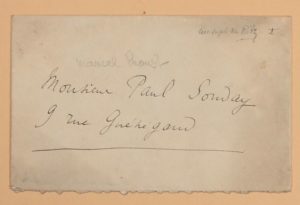 Marcel Proust
Monsieur Paul Souday
9 rue Guénégaud